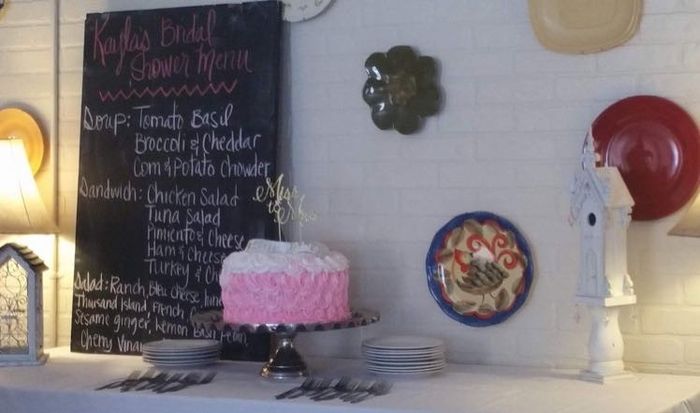 Kayla's Bridal
Shower Menu
Soup: Tomato Basil
Broccoli & Cheddar
Corn & Potato Chowder
Sandwich: Chicken Salad
Tuna Salad
Pimiento & Cheese
Ham & Cheese
Turkey &
Salad: Ranch, bleu cheese,
Thousand Island, French,
Sesame ginger, Lemon Basil
Cherry
Miss
to
Mrs